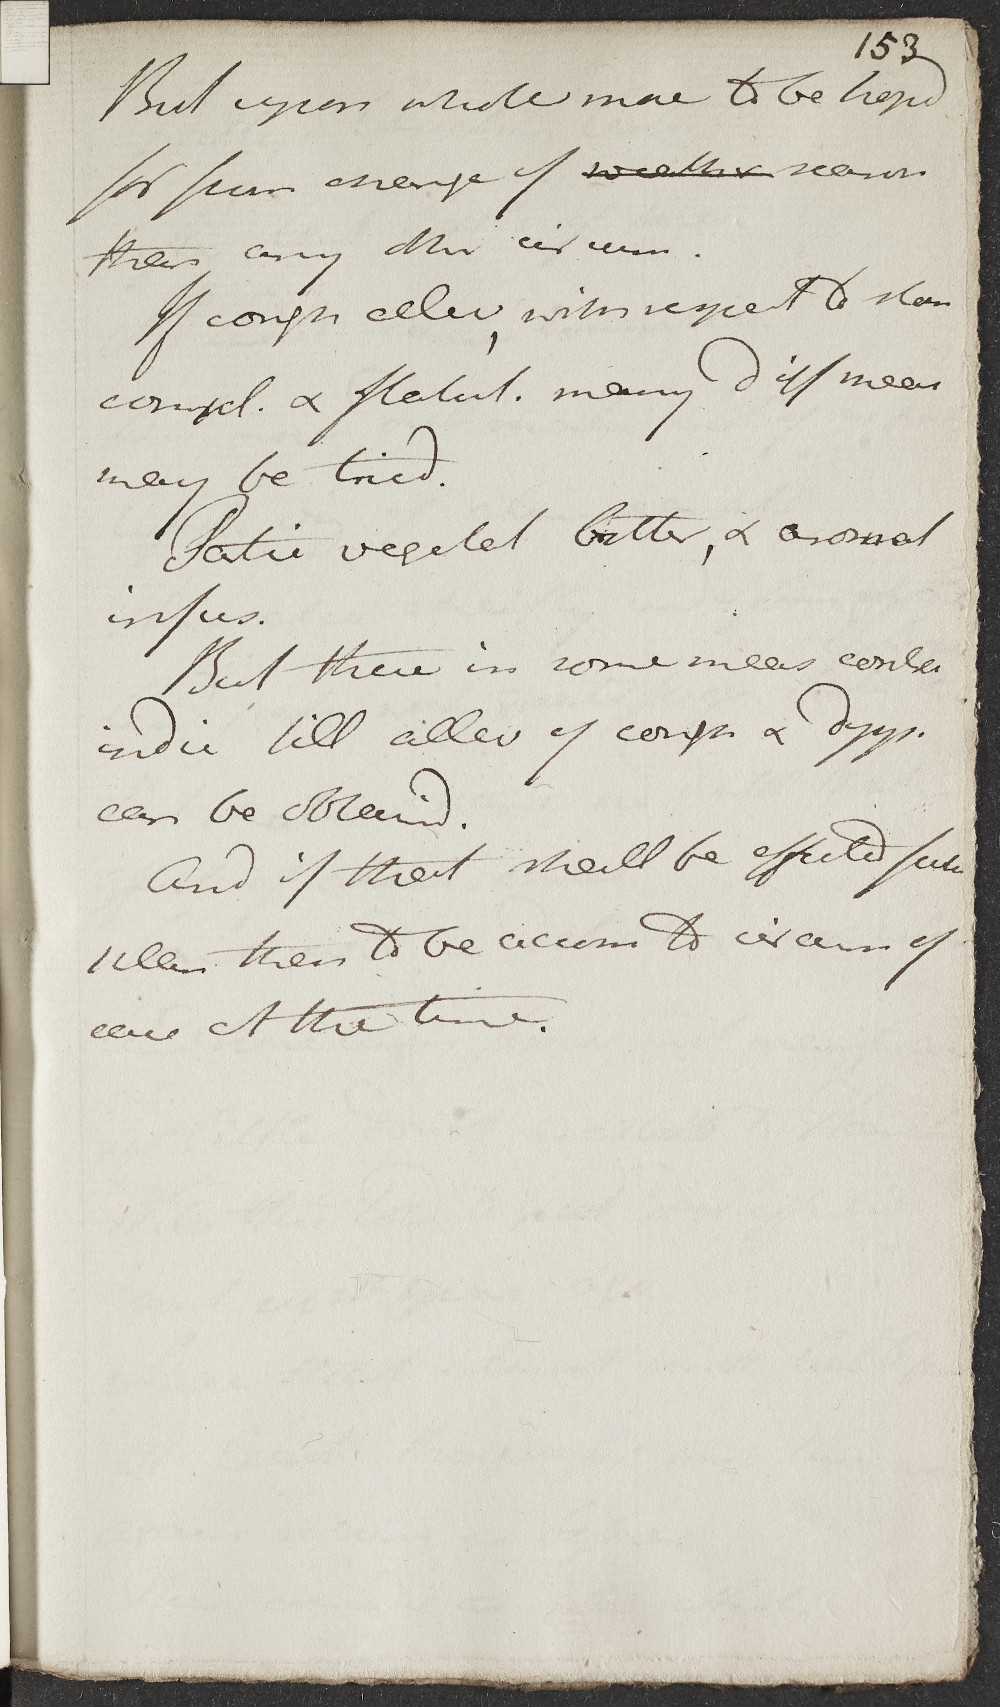 153
But upon whole more to be hopd
for from change of weather season
than any other circum.
If cough allev, with respect to stom
compl. & flatul. many diff meas
may be tried.
vegetel bitter, & aromat
infus.
But these in some meas contra
indic till allev of cough & dysp.
can be obtaind.
And if that shall be effected
then to be accom to circum of
case at the time.